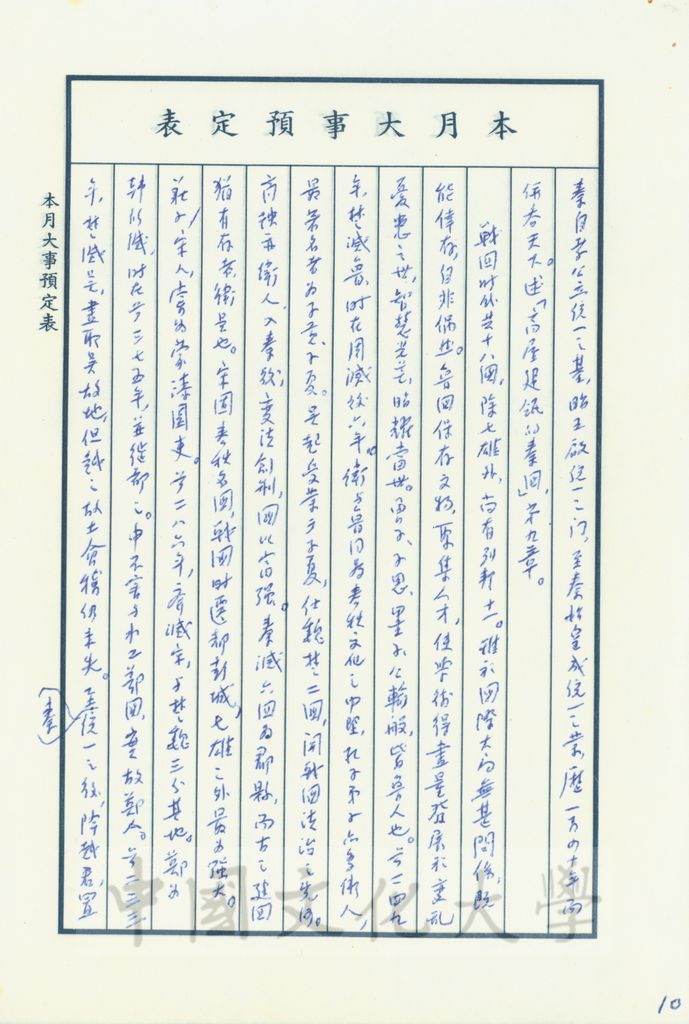 本月大事預定表
秦自孝公立統一之基,昭王啟統一之门,至秦始皇成統一之業,歷一百四十年而
併吞天下。述「高屋建瓴的秦國」第九章。
戰国时外共十八國,除七雄外,尚有列邦十一。雖於国際大局無甚関係,既
能倖存,自非偶然。魯国保存文物,聚集人才,使學術得盡量發展於变乱
憂患之世,智慧光芒,昭耀當世。曾子、子思、墨子、公輸般,皆魯人也。前二四九
年,楚滅魯,时在周滅後六年。衛与晋同為春秋文化之中堅,孔子弟子亦多衛人,
最著名者为子贡、子夏。吴起受業于子夏,仕魏楚二国,開戰国法治之先河。
商鞅亦衛人,入秦後,变法創制,國以富强。秦滅六囯为郡縣,而古之建国
猶有存者,衛是也。宋国春秋名國,戰国时遷都彭城,七雄之外最为强大。
莊子,宋人,嘗为蒙漆園吏。前二八六年,齊滅宋,与楚魏三分其地。鄭为
韩所滅,时在前三七五年,並徙都之。申不害
鄭国,
故鄭人。前三三三
年,楚滅越,盡取吴故地,但越之故土會稽仍未失。
秦
統一之後,降越君,置
本月大事預定表
中國文化大學
10